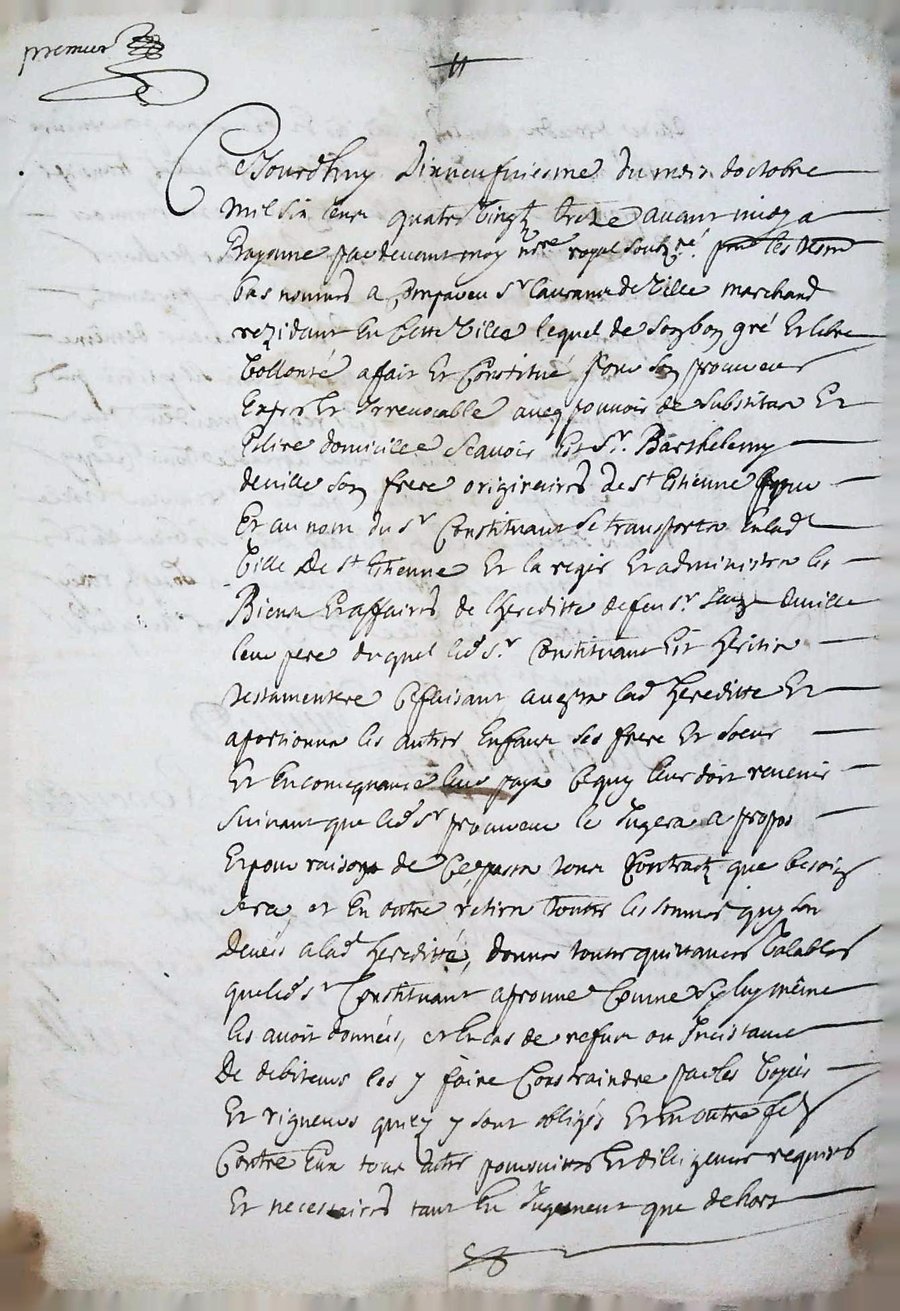 premier
Cejourdhuy dixneufuiesme du mois doctobre
mil six cens quatre vingtz treze auant midy a
Bayonne pardeuant moy nore royal soubzné les tesm
bas nommés a compareu Sr laurans deville marchand
rezidant en cette ville lequel de son bon gré et libre
vollonté a fait et constitué pour son procureur
expres et Irreuocable aueq pouuoir de substituer et
Eslire domicille scauoir est Sr. Barthelemy
deuille son frere originaires de st Etienne pour
et au nom du sr constituant se transporter en lad
ville de st Etienne et la regir et administrer les
Biens et affaires de lhereditté de feu sr deuille
leur pere duquel led sr. constituant est heritier
testamentere ce faisant lad hereditte et
aportionner les autres enfans ses frere et soeurs
et en consequance leur payer ce quy leur doit reuenir
suiuant que led sr procureur le Jugera a propos
et pour raison de ce passer tous contractz que besoin
sera, et en outre retirer touttes les sommes quy son
deues a lad hereditté, donner toutes quittances valables
que led sr constituant aprouue comme sy luy même
les auoit données, et en cas de refus ou
de debiteurs les y faire constraindre par les voyes
et rigueurs quilz y sont obligés et en outre fe
contre eux tous actes poursuittes et diligences requises
et necessaires tant en Jugement que dehors